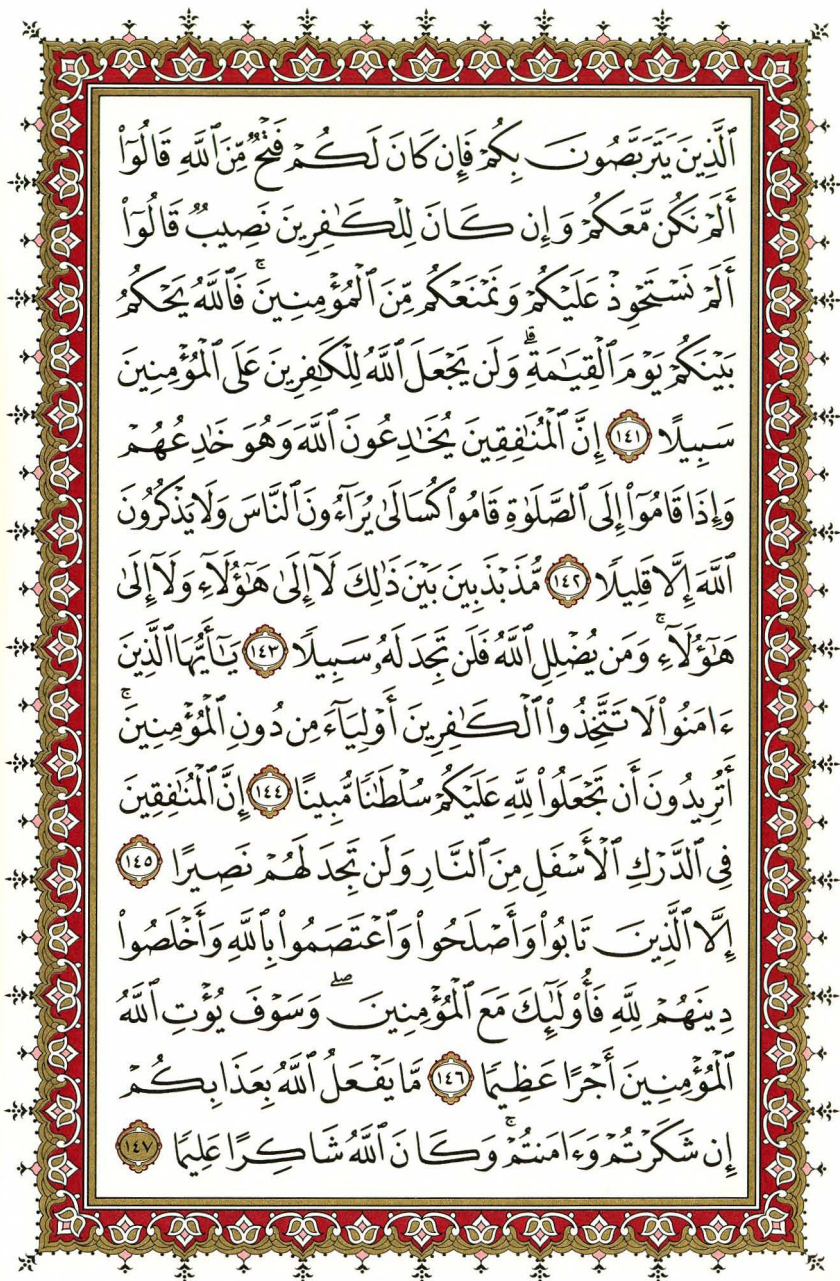 ٱلَّذِينَ يَتَرَبَّصُونَ بِكُمْ فَإِن كَانَ لَكُمْ فَتْحٌ مِّنَ ٱللَّهِ قَالُوٓا۟
أَلَمْ نَكُن مَّعَكُمْ وَإِن كَانَ لِلْكَٰفِرِينَ نَصِيبٌ قَالُوٓا۟
أَلَمْ نَسْتَحْوِذْ عَلَيْكُمْ وَنَمْنَعْكُم مِّنَ ٱلْمُؤْمِنِينَ ۚ فَٱللَّهُ يَحْكُمُ
بَيْنَكُمْ يَوْمَ ٱلْقِيَٰمَةِ ۗ وَلَن يَجْعَلَ ٱللَّهُ لِلْكَٰفِرِينَ عَلَى ٱلْمُؤْمِنِينَ
سَبِيلًا ١٤١ إِنَّ ٱلْمُنَٰفِقِينَ يُخَٰدِعُونَ ٱللَّهَ وَهُوَ خَٰدِعُهُمْ
وَإِذَا قَامُوٓا۟ إِلَى ٱلصَّلَوٰةِ قَامُوا۟ كُسَالَىٰ يُرَآءُونَ ٱلنَّاسَ وَلَا يَذْكُرُونَ
ٱللَّهَ إِلَّا قَلِيلًا ١٤٢ مُّذَبْذَبِينَ بَيْنَ ذَٰلِكَ لَآ إِلَىٰ هَٰٓؤُلَآءِ وَلَآ إِلَىٰ
هَٰٓؤُلَآءِ ۚ وَمَن يُضْلِلِ ٱللَّهُ فَلَن تَجِدَ لَهُۥ سَبِيلًا ١٤٣ يَٰٓأَيُّهَا ٱلَّذِينَ
ءَامَنُوا۟ لَا تَتَّخِذُوا۟ ٱلْكَٰفِرِينَ أَوْلِيَآءَ مِن دُونِ ٱلْمُؤْمِنِينَ ۚ
أَتُرِيدُونَ أَن تَجْعَلُوا۟ لِلَّهِ عَلَيْكُمْ سُلْطَٰنًا مُّبِينًا ١٤٤ إِنَّ ٱلْمُنَٰفِقِينَ
فِى ٱلدَّرْكِ ٱلْأَسْفَلِ مِنَ ٱلنَّارِ وَلَن تَجِدَ لَهُمْ نَصِيرًا ١٤٥
إِلَّا ٱلَّذِينَ تَابُوا۟ وَأَصْلَحُوا۟ وَٱعْتَصَمُوا۟ بِٱللَّهِ وَأَخْلَصُوا۟
دِينَهُمْ لِلَّهِ فَأُو۟لَٰٓئِكَ مَعَ ٱلْمُؤْمِنِينَ ۖ وَسَوْفَ يُؤْتِ ٱللَّهُ
ٱلْمُؤْمِنِينَ أَجْرًا عَظِيمًا ١٤٦ مَّا يَفْعَلُ ٱللَّهُ بِعَذَابِكُمْ
إِن شَكَرْتُمْ وَءَامَنتُمْ ۚ وَكَانَ ٱللَّهُ شَاكِرًا عَلِيمًا ١٤٧